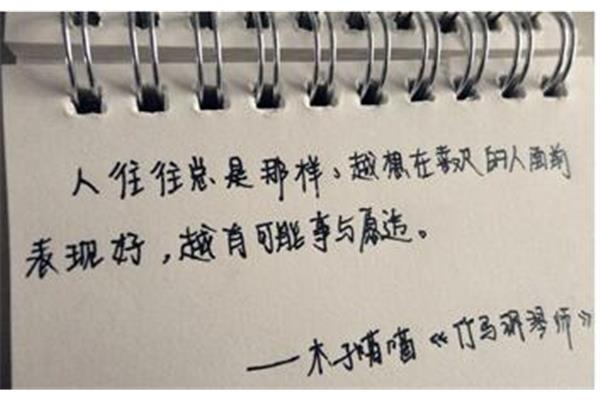 人往往总是那样，越想在喜欢的人面前
表现好，越有可能事与愿违。
——木子喃喃《竹马钢琴师》